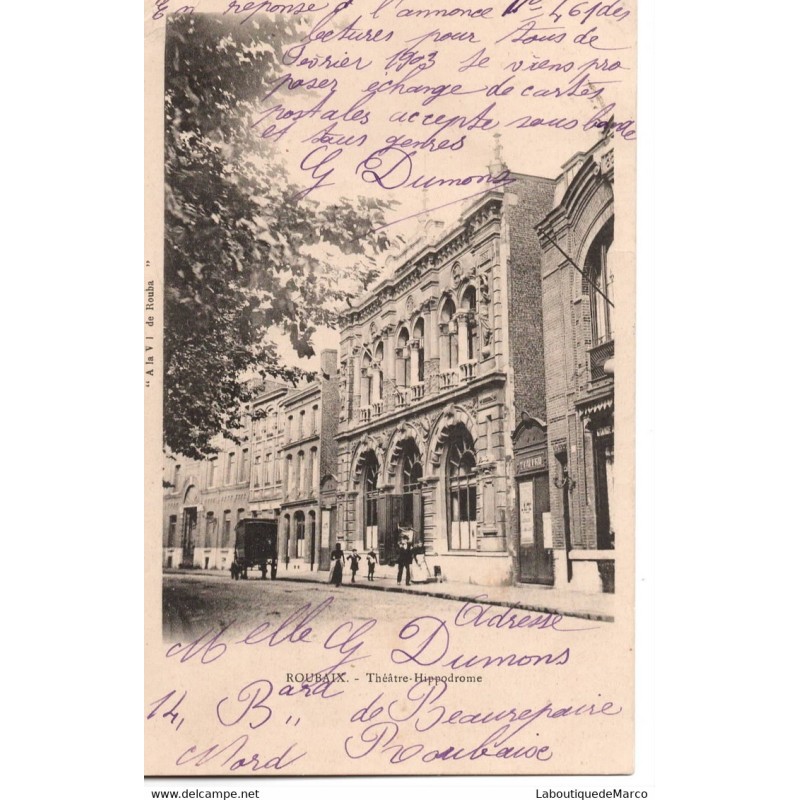 En réponse à l'annonce N° 461 des
lectures pour tous de
Février 1903 Je viens pro
poser échange de cartes
postales accepte sous bande
et tous genres
G Dumons
" A la V de Rouba "
Adresse
Melle G Dumons
ROUBAIX. - Théâtre-Hippodrome
14, Bard de Beaurepaire
" Roubaix
Nord
www.delcampe.net
LaboutiquedeMarco